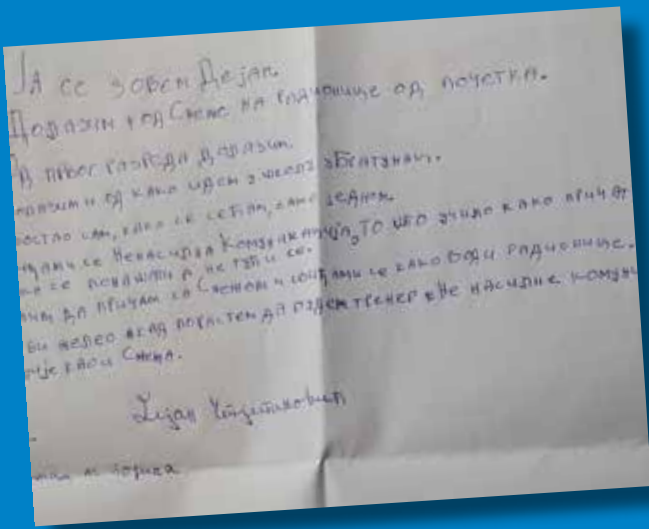 ЈА СЕ ЗОВЕМ ДЕЈАН.
ДОЛАЗИМ КОД СНЕЖЕ НА РАДИОНИЦЕ ОД ПОЧЕТКА.
ПРВОГ РАЗРЕДА ДОЛАЗИМ.
И ОД КАКО ИДЕМ У ШКОЛУ БРАТУНАЦ.
САМ, КАКО СЕ СЕЋАМ, САМО ЈЕДНОМ.
СЕ НЕНАСИЛНА КОМУНИКАЦИЈА, ТО МЕ УЧИЛО КАКО ПРИЧАТ
СЕ ПОНАШАТИ А НЕ ТУЋИ СЕ.
ДА ПРИЧАМ СА СНЕЖОМ И СВИЂА МИ СЕ КАКО ВОДИ РАДИОНИЦЕ.
БИ ЖЕЛЕО КАД ПОРАСТЕМ ДА БУДЕМ ТРЕНЕР НЕ НАСИЛНЕ КОМУНИ
КАО И СНЕЖА.
Дејан
година